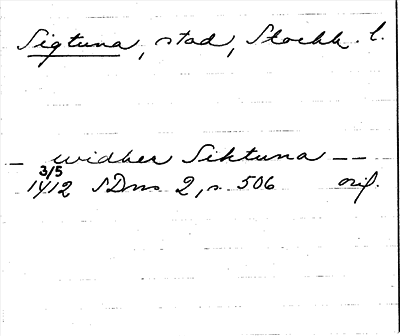 Sigtuna, stad, Stockh. l.
– widher Siktuna – –
3/5
1412 SDns 2, s. 506 orig.